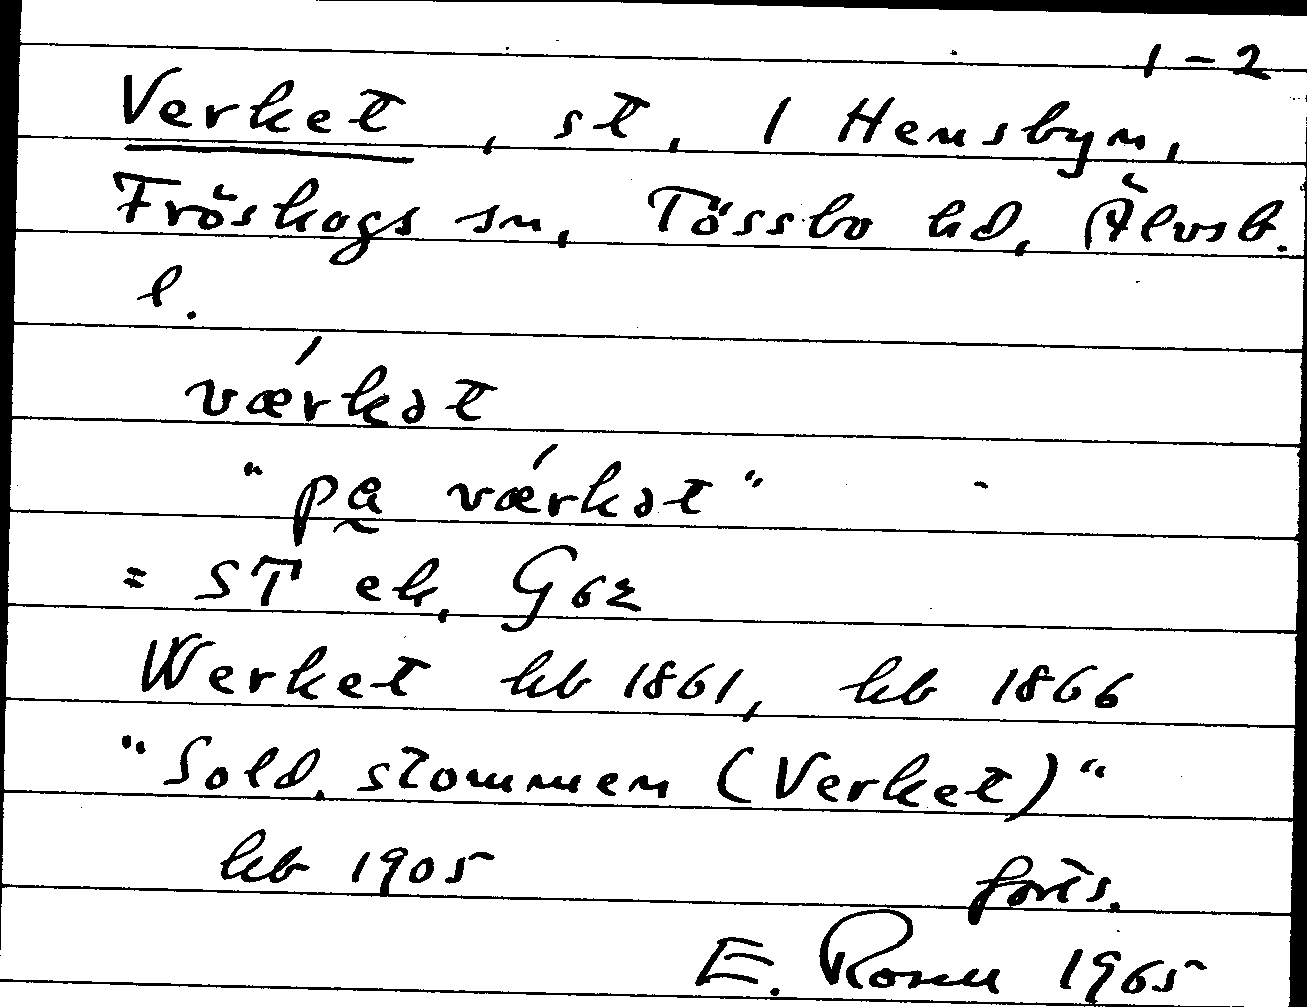 1-2
Verket, st, 1 Hensbyn,
Fröskogs sn, Tössbo hd, Älvsb.
l.
vǽrkət
"på vǽrkət"
= ST ek, G 62
Werket hb 1861, hb 1866
"Sold. stommen (Verket)"
hb 1905 forts.
E. 1965